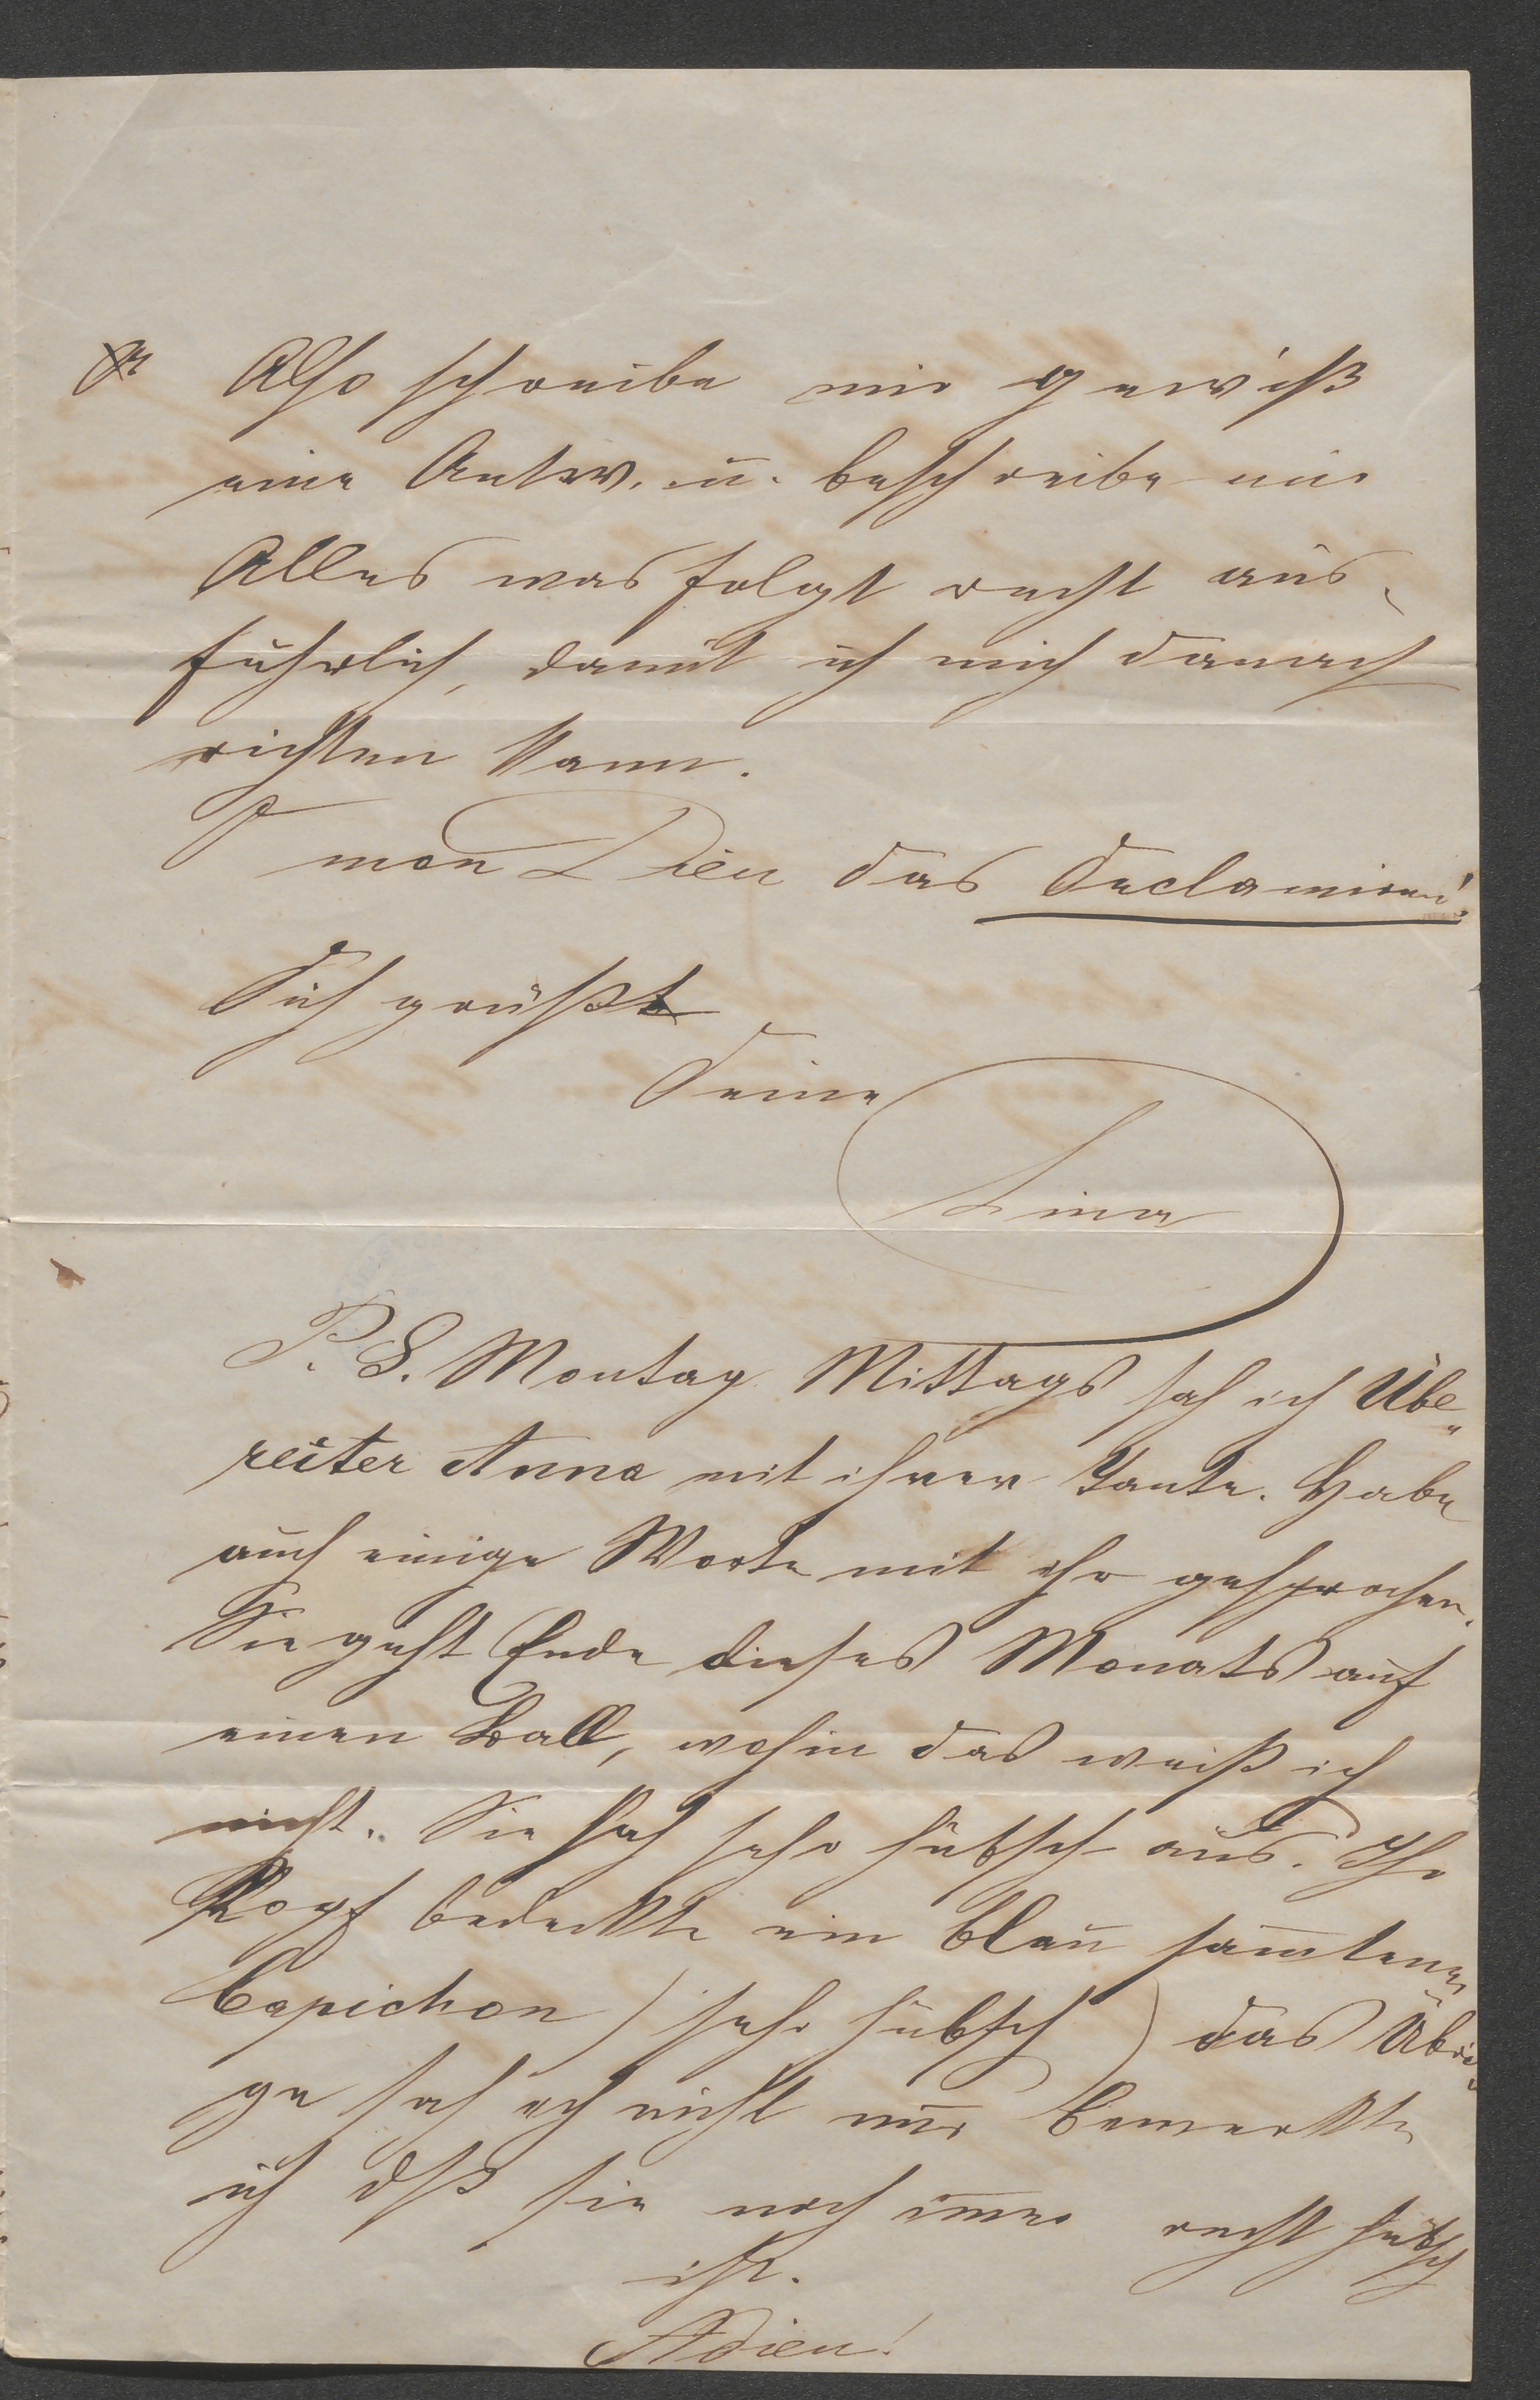 Also schreibe mir gewiß
eine Antw. u. beschreibe mir
Alles was folgt recht aus-
führlich, damit ich mich danach
richten kann.
O
mon Dieu das Declamiren!
Dich grüßt
Deine
Lina
P. S. Montag Mittags sah ich Übe-
reiter Anna mit ihrer Tante. Habe
auch einige Worte mit ihr gesprochen.
Sie geht Ende dieses Monats auf
einen Ball, wohin das weiß ich
nicht. Sie sah sehr hübsch aus. Ihr
Kopf bedeckte ein blau samtener
Capichon (sehr hübsch) das Übri-
ge sah ich nicht nur bemerkte
ich dß sie noch imer recht hübsch
ist.
Adieu!